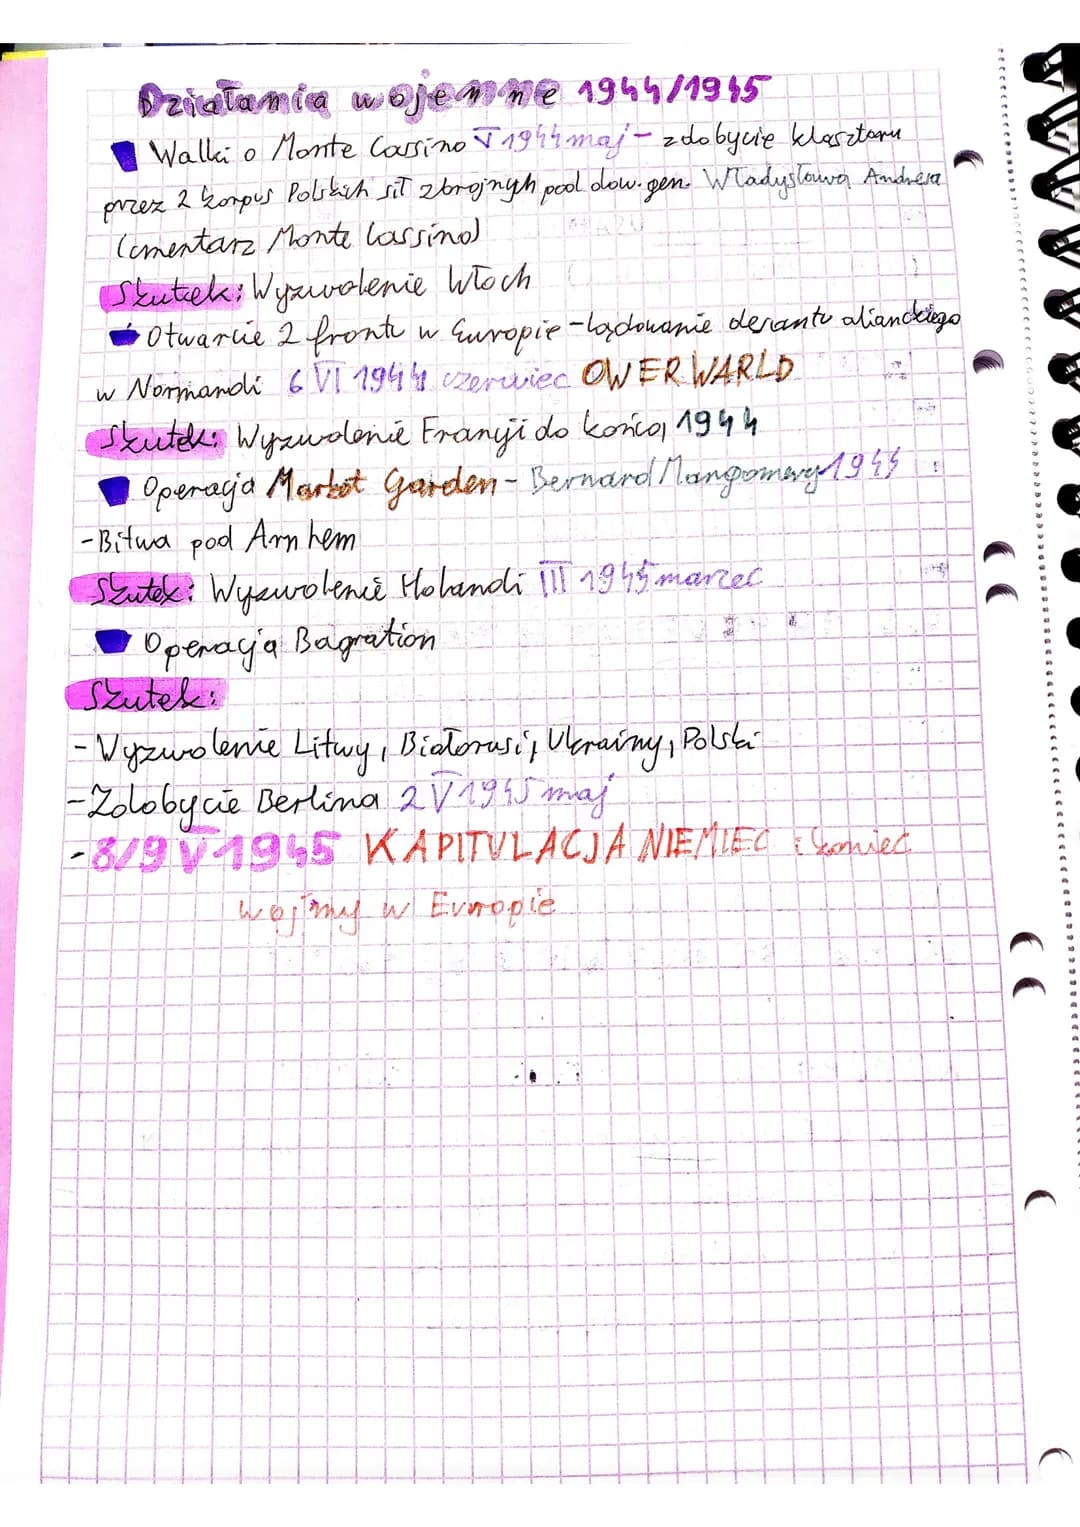 Działania wojenne 1944/1945
Walki o Monte Cassino V 1944 maj - zdobycie klasztoru
przez 2 korpus Polskich sił zbrojnych pod dow. gen. Władysława Andersa
(cmentarz Monte Cassino)
Skutek: Wyzwolenie Włoch
Otwarcie 2 frontu w Europie - lądowanie desantu alianckiego
w Normandi 6 VI 1944 czerwiec OWERWARLD
Skutek: Wyzwolenie Francji do końca 1944
Operacja Market Garden - Bernard Mangomery 1944
- Bitwa pod Arnhem
Skutek: Wyzwolenie Holandi III 1945 marzec
Operacja Bagration
Skutek:
- Wyzwolenie Litwy, Białorusi, Ukrainy, Polski
- Zdobycie Berlina 2 V 1945 maj
- 8/9 V 1945 KAPITULACJA NIEMIEC i koniec
wojny w Europie